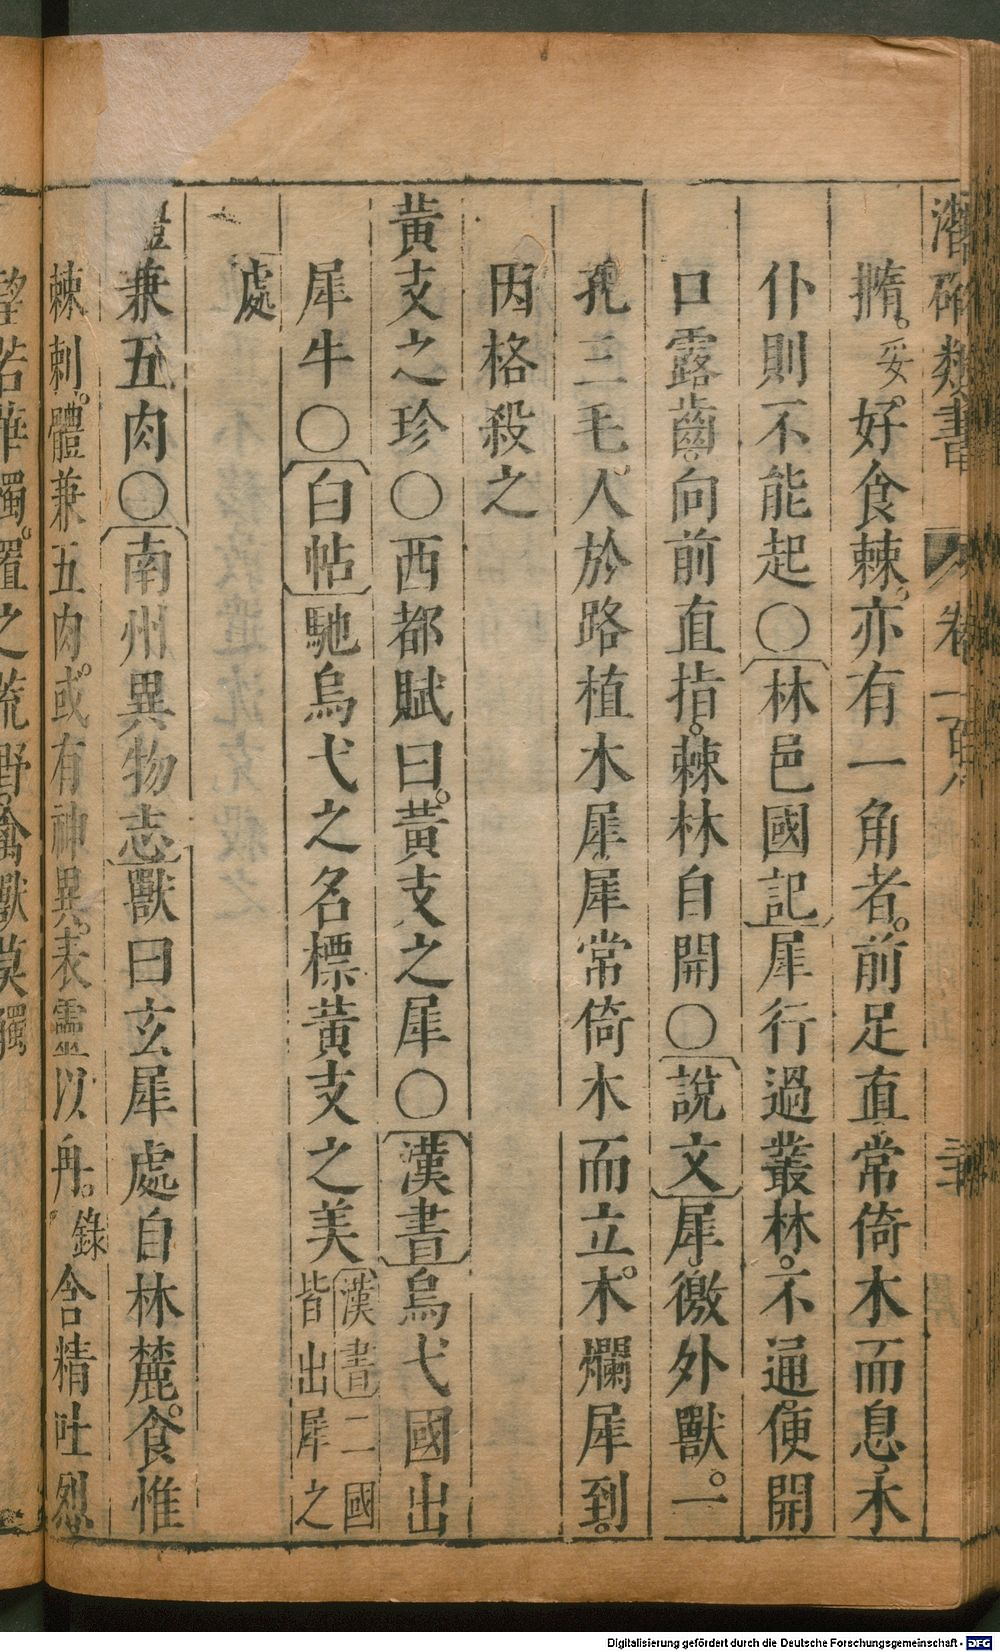 潛確類書 卷一百
橢。妥。好食棘。亦有一角者。前足直常倚木而息木
仆則不能起〇林邑國記犀行過叢林。不通便開
口露齒。向前直指。棘林自開〇說文犀徼外獸。一
孔三毛。人於路植木犀。犀常倚木而立。木爛犀到。
因格殺之
黃支之珍〇西都賦曰。黃支之犀〇漢書烏弋國出
犀牛〇白帖馳烏弋之名標黃支之美漢書二國
皆出犀之
處
體兼五肉〇南州異物志獸曰玄犀處自林麓。食惟
棘刺。體兼五肉。或有神異。表靈以角。錄含精吐烈
望若華燭。置之荒野。禽獸莫觸
Digitalisierung gefördert durch die Deutsche Forschungsgemeinschaft - DFG